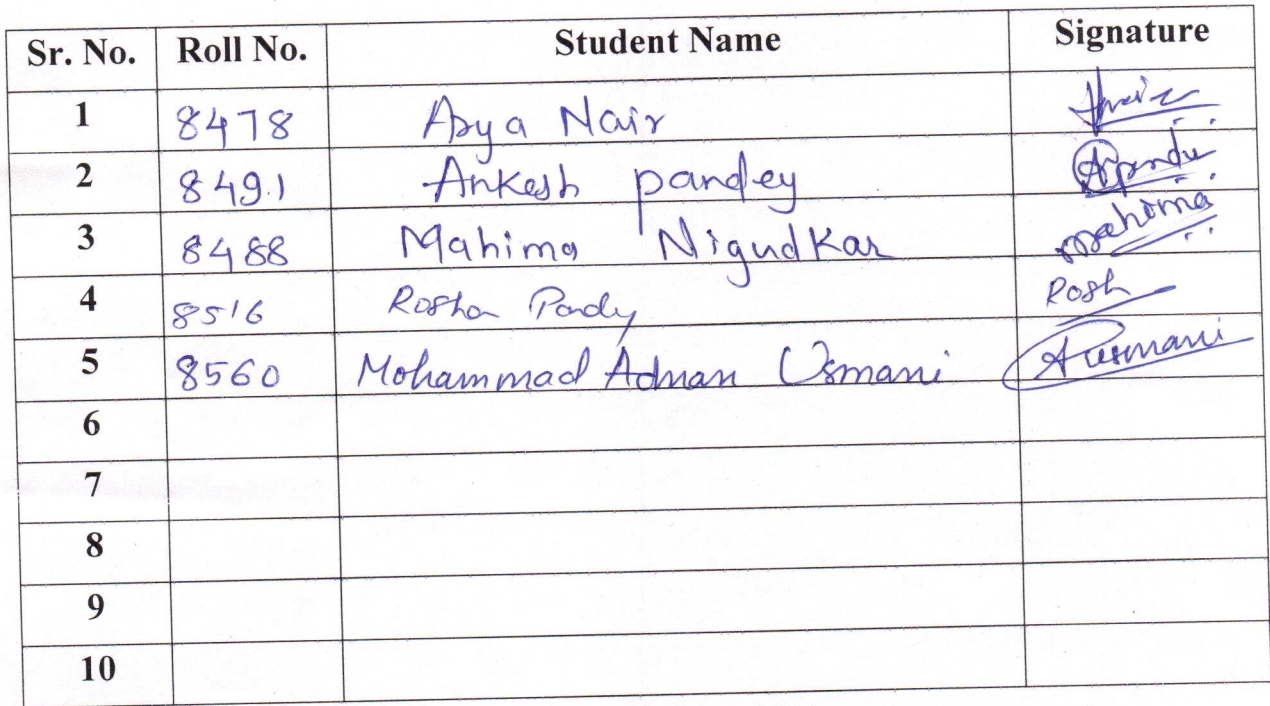 Sr. No. Roll No. Student Name Signature
1 8478 Arya Nair
2 8491 Ankesh pandey
3 8488 Mahima Nigudkar mahima
4 8516 Rosha Pandy Rosh
5 8560 Mohammad Adnan Usmani Ausmani
6
7
8
9
10